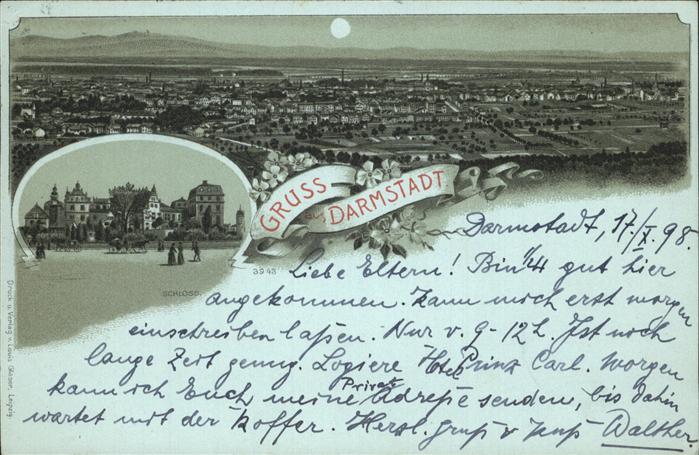 GRUSS aus DARMSTADT
SCHLOSS.
3943
Druck u. Verlag v. Louis Glaser, Leipzig.
Darmstadt, 17./X. 98.
Liebe Eltern! Bin 1/4 gut hier
angekommen. Kann mich erst morgen
einschreiben laßen. Nur v. 9-12 h. Ist noch
lange Zeit genug. Logiere Hotel Prinz Carl. Morgen
kann ich Euch meine Privat Adreße senden, bis dahin
wartet mit der Koffer. Herzl. Gruß u Kuß Walther.